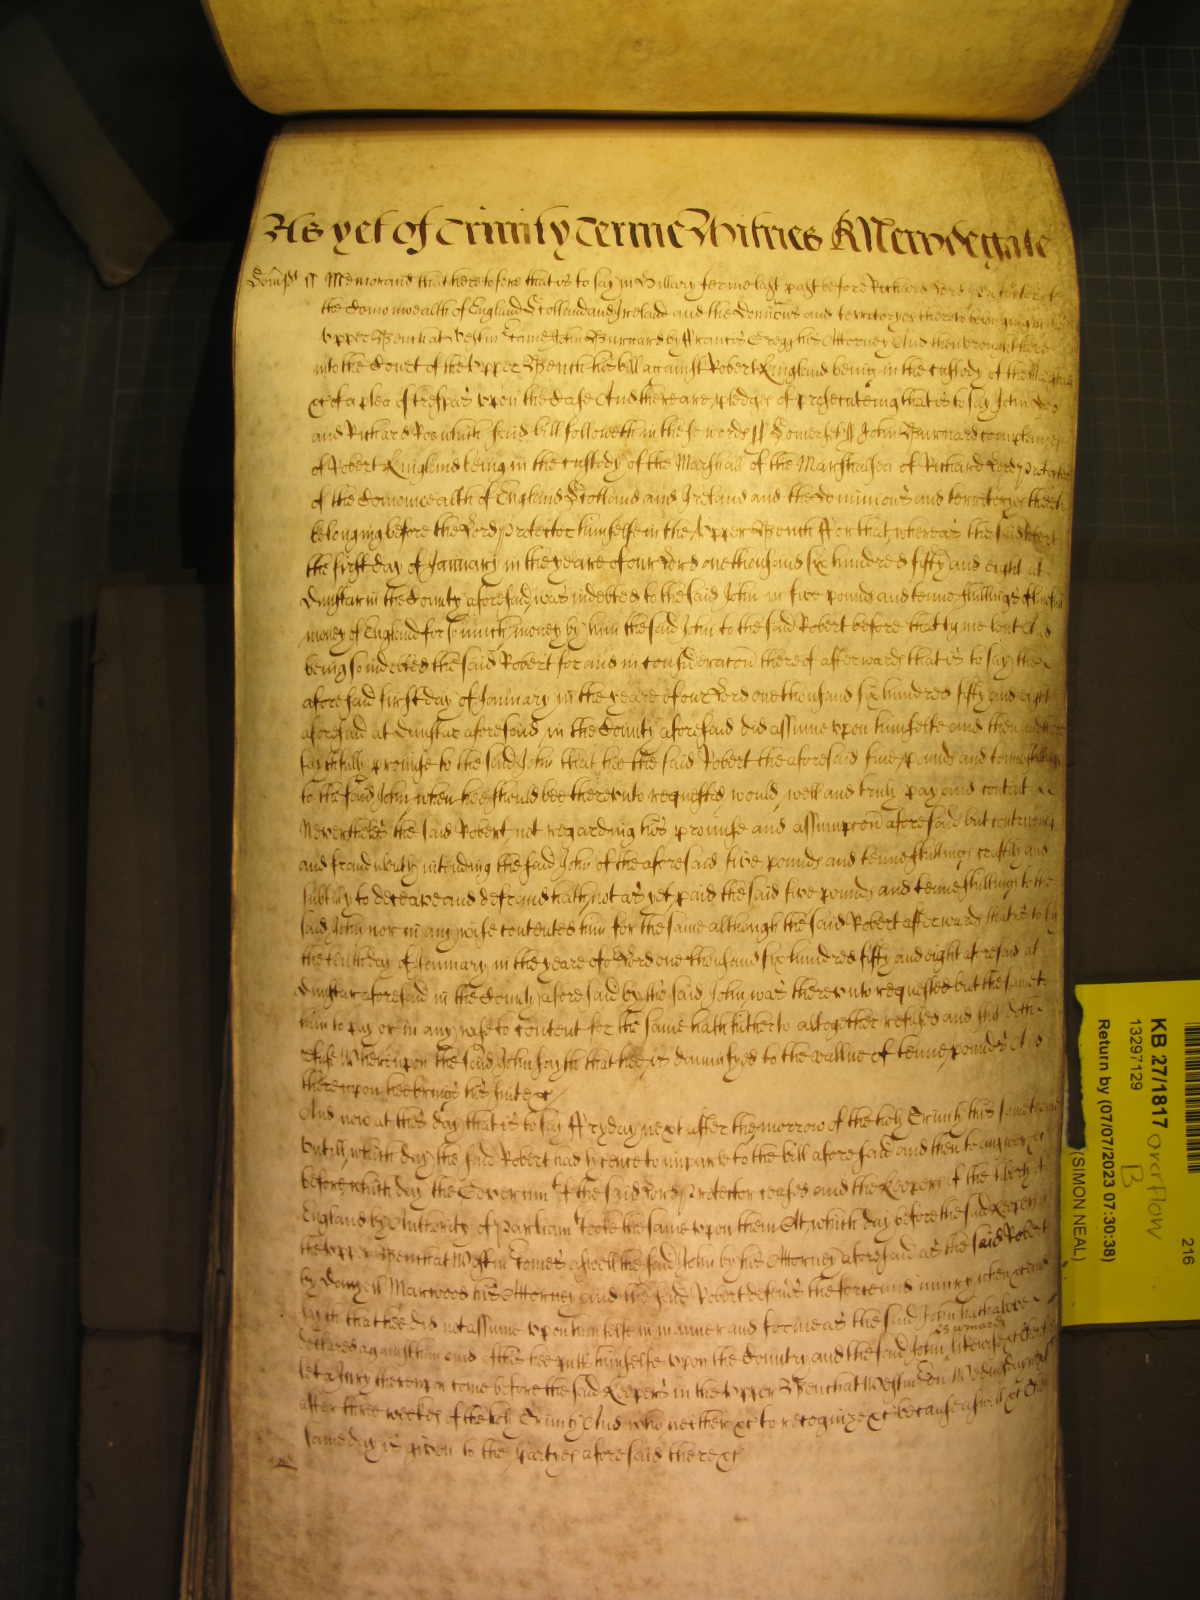 As yet of Trinity Terme Witnes R Newdegate
Somst ss Memorand that heretofore that is to say in Hillary terme last past before Richard Lord Protector of
the Comonwealth of England Scotland and Ireland and the Dominions and territoryes thereto belonging in the
Upper Bench at Westm Came John Burnard by Francis Gregg his Attorney And then brought here
into the Court of the Upper Bench his bill against Robert Kingland being in the custody of the Marshall
&c of a plea of trespas upon the Case And there are pledges of prosecuteing that is to say John Doo
and Richard Roo which said bill followeth in these words ss Somerset ss John Burnard complaines
of Robert Kingland being in the custody of the Marshall of the Marshalsea of Richard Lord Protector
of the Comonwealth of England Scotland and Ireland and the Dominions and territoryes thereto
belonging before the Lord Protector himselfe in the Upper Bench For that whereas the said Robert
the first day of January in the yeare of our Lord one thousand six hundred fifty and eight at
Dunstar in the County aforesaid was indebted to the said John in five pounds and tenne shillings of lawfull
money of England for so much money by him the said John to the said Robert before that tyme lent And
being so indebted the said Robert for and in consideracon thereof afterwards that is to say the
aforesaid first day of January in the yeare of our Lord one thousand six hundred fifty and eight
aforesaid at Dunstar aforesaid in the County aforesaid did assume upon himselfe and then and there
faithfully promise to the said John that hee the said Robert the aforesaid five pounds and tenne shillings
to the said John when hee should bee thereunto requested would well and truly pay and content
Neverthelesse the said Robert not regarding his promise and assumpcon aforesaid but contriveing
and fraudulently intending the said John of the aforesaid five pounds and tenne shillings craftily and
subtilly to deceave and defraud hath not as yet paid the said five pounds and tenne shillings to the
said John nor in any wise contented him for the same although the said Robert afterwards that is to say
the tenth day of January in the yeare of or Lord one thousand six hundred fifty and eight aforesaid at
Dunstar aforesaid in the County aforesaid by the said John was thereunto requested but the same to
him to pay or in any wise to content for the same hath hitherto altogether refused and still doth
refuse Whereupon the said John sayth that hee is damnifyed to the vallue of tenne pounds And
thereupon hee brings his suite &c
And now at this day that is to say Fryday next after the morrow of the holy Trinity this same terme
untill which day the said Robert had lycence to imparle to the bill aforesaid and then to answer &c
before which day the Governmt of the said Lord Protector ceased and the Keepers of the liberty of
England by Authority of Parliamt tooke the same upon them At which day before the said Keepers in
the Upper Bench at Westm Comes aswell the said John by his Attorney aforesaid as the said Robert
by Marwood his Attorney and the said Robert defends the force and iniury when &c and
sayth that hee did not assume upon himselfe in manner and forme as the said John hath above
declared against him and of this hee putts himselfe upon the Country and the said John Burnard likewise &c Therefore
let a Jury thereupon come before the said Keepers in the Upper Bench at Westm on Wednesday next
after three weekes of the holy Trinity And who neither &c to recognize &c because aswell &c The
same day is given to the partyes aforesaid there &c
KB 27/1817 overflow B
13297129
Return by (07/07/2023 07:30:38)
(SIMON NEAL)
216